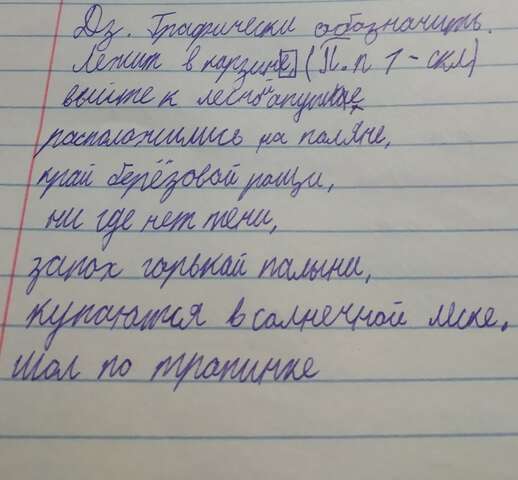 Дз. Графически обозначить.
Лежит в корзине, (П.п 1-скл)
выйте к лесной апушке,
расположились на паляне,
край берёзовой рощи,
ни где нет тени,
запох горькай палыни,
купаются в солнечной леске,
шол по трапинке